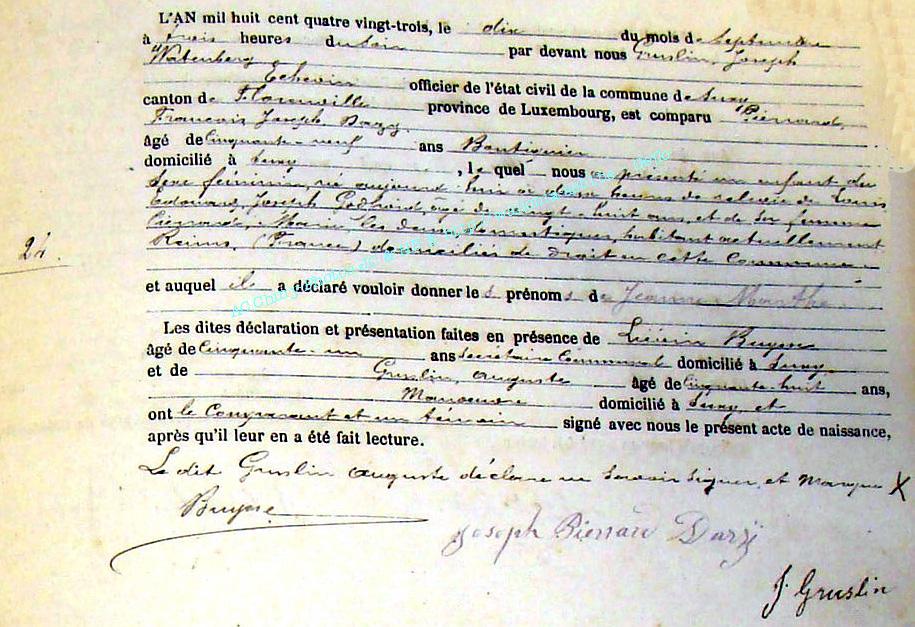 L'AN mil huit cent quatre vingt-trois, le dix du mois de Septembre
à trois heures du soir par devant nous Gruslin, Joseph
Echevin officier de l'état civil de la commune de Suxy
canton de Florenville province de Luxembourg, est comparu Pierrard,
François Joseph Darzy
âgé de cinquante-neuf ans Boutiquier
domicilié à Suxy, le quel nous a présenté un enfant du
sexe féminin, né aujourd'hui à deux heures de relevée de Louis
Edouard, Joseph, âgé de vingt-huit ans, et de sa femme
Marie, les deux domestiques, habitant actuellement
Reims, (France) domiciliés de droit en cette Commune
24.
et auquel il a déclaré vouloir donner les prénoms de Jeanne Marthe
Les dites déclaration et présentation faites en présence de Buysse
âgé de Cinquante-un ans Secrétaire Communal domicilié à Suxy
et de Gruslin, Auguste âgé de cinquante-huit ans,
Manoeuvre domicilié à Suxy, et
ont le Comparant et un témoin signé avec nous le présent acte de naissance,
après qu'il leur en a été fait lecture.
Le dit Gruslin Auguste déclare ne savoir signer et marque X
Buysse
Joseph Pierrard Darzy
J. Gruslin